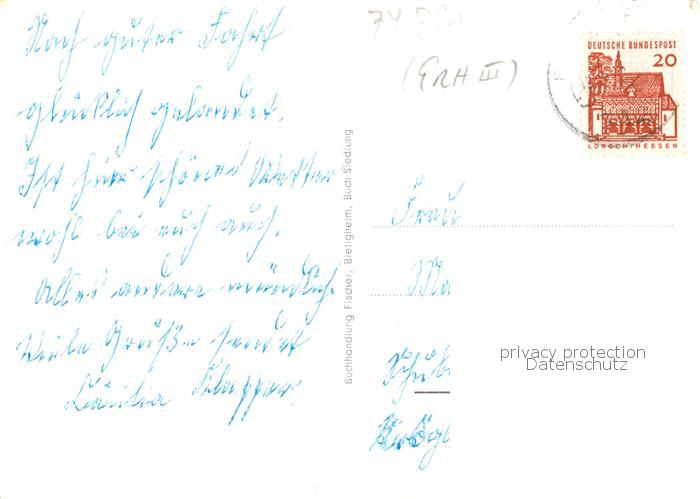 Nach guter Fahrt
glücklich gelandet.
Ist hier schönes Wetter
wohl bei euch auch.
Alles andere mündlich.
Viele Grüße sendet
74 321
(GRH III)
DEUTSCHE BUNDESPOST
20
LORSCH/HESSEN
Buchhandlung Fischer, Bietigheim, Buch Siedlung
Frau
Ma
privacy protection
Datenschutz